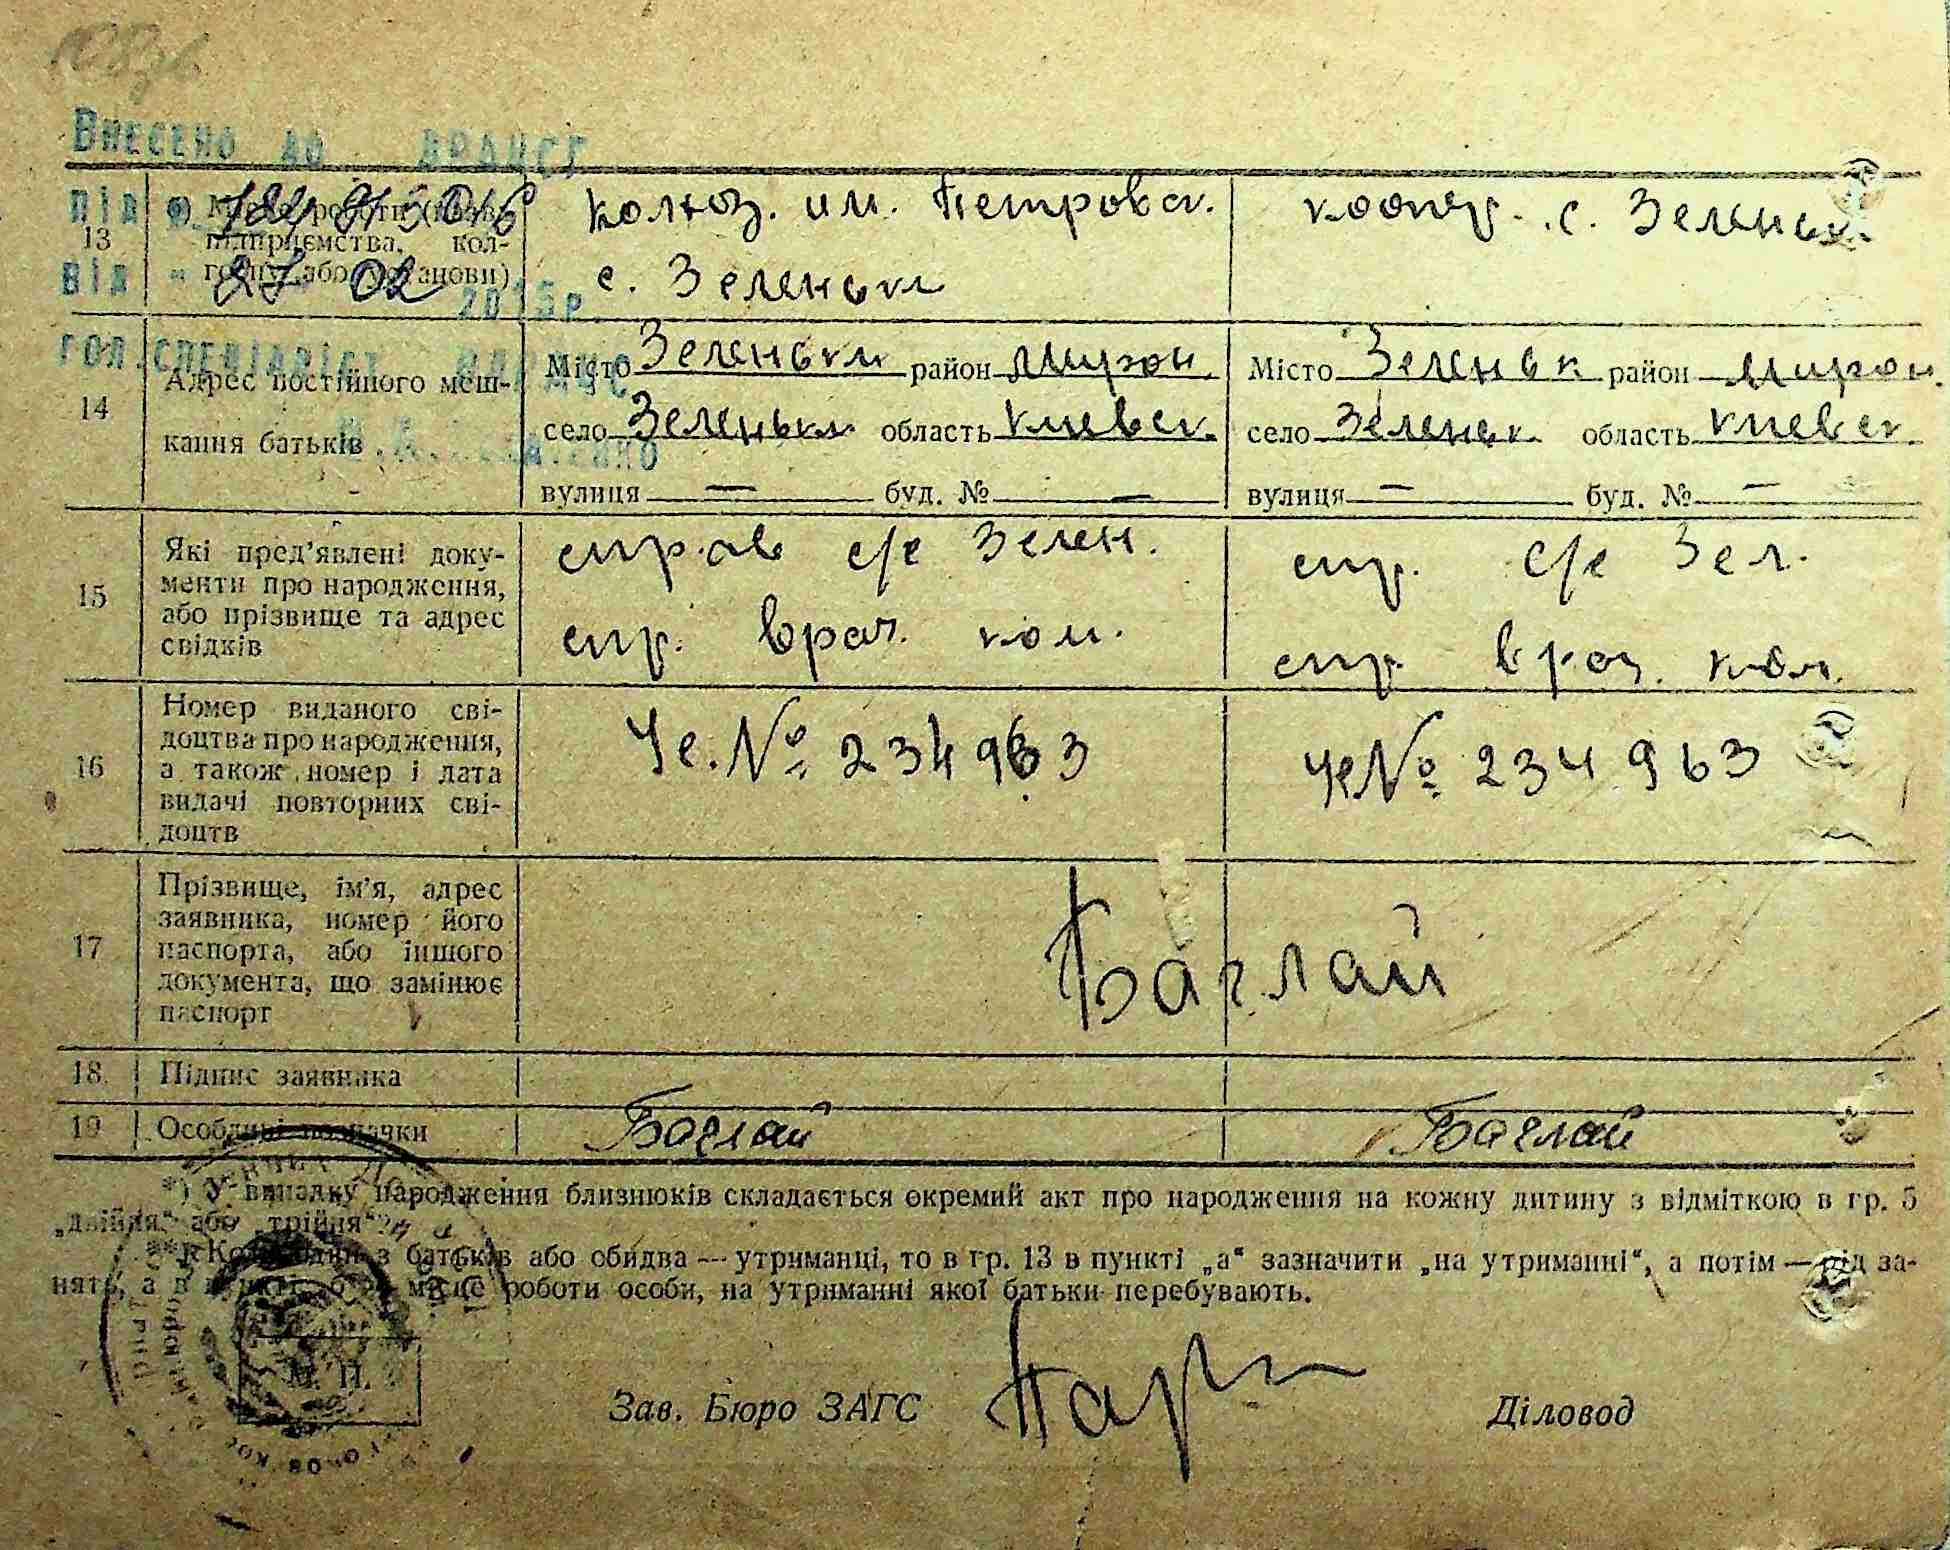 Внесено до ДРАЦСГ
під
від " 27 02 2015р.
гол.спеціаліст
13
б) Місце роботи (назва підприємства, кол-
госпу або установи)
колхоз. им. Петровск.
с. Зеленьки
коопер. с. Зеленьк.
14
Адрес постійного меш-
кання батьків
Місто Зеленьки район Мирон.
село Зеленьки область Киевск.
вулиця — буд. № —
Місто Зеленьк район Мирон.
село Зеленьк. область Киевск.
вулиця — буд. № —
15
Які пред'явлені доку-
менти про народження,
або прізвище та адрес
свідків
справ с/с Зелен.
спр. врач. ком.
спр. с/с Зел.
спр. врач. ком.
16
Номер виданого сві-
доцтва про народження,
а також номер і дата
видачі повторних сві-
доцтв
Че. № 234963
Че № 234963
17
Прізвище, ім'я, адрес
заявника, номер його
паспорта, або іншого
документа, що замінює
паспорт
Баглай
18.
Підпис заявника
19
Особливі позначки
Баглай
Баглай
*) У випадку народження близнюків складається окремий акт про народження на кожну дитину з відміткою в гр. 5
„двійня" або „трійня".
**) Коли один з батьків або обидва — утриманці, то в гр. 13 в пункті „а" зазначити „на утриманні", а потім — рід за-
нять, а в пункті „б" — місце роботи особи, на утриманні якої батьки перебувають.
М. П.
Зав. Бюро ЗАГС
Діловод